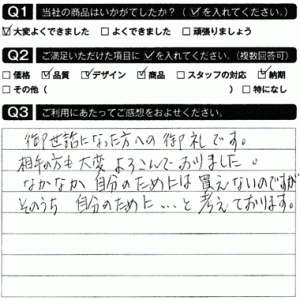 Q1 当社の商品はいかがでしたか？（✓を入れてください。）
☑大変よくできました □よくできました □頑張りましょう
Q2 ご満足いただけた項目に✓を入れてください。（複数回答可）
□価格 ☑品質 ☑デザイン ☑商品 □スタッフの対応 ☑納期
□その他（ ） □特になし
Q3 ご利用にあたってご感想をおよせください。
御世話になった方への御礼です。
相手の方も大変よろこんでおりました。
なかなか自分のためには買えないのですが
そのうち 自分のために…と考えております。